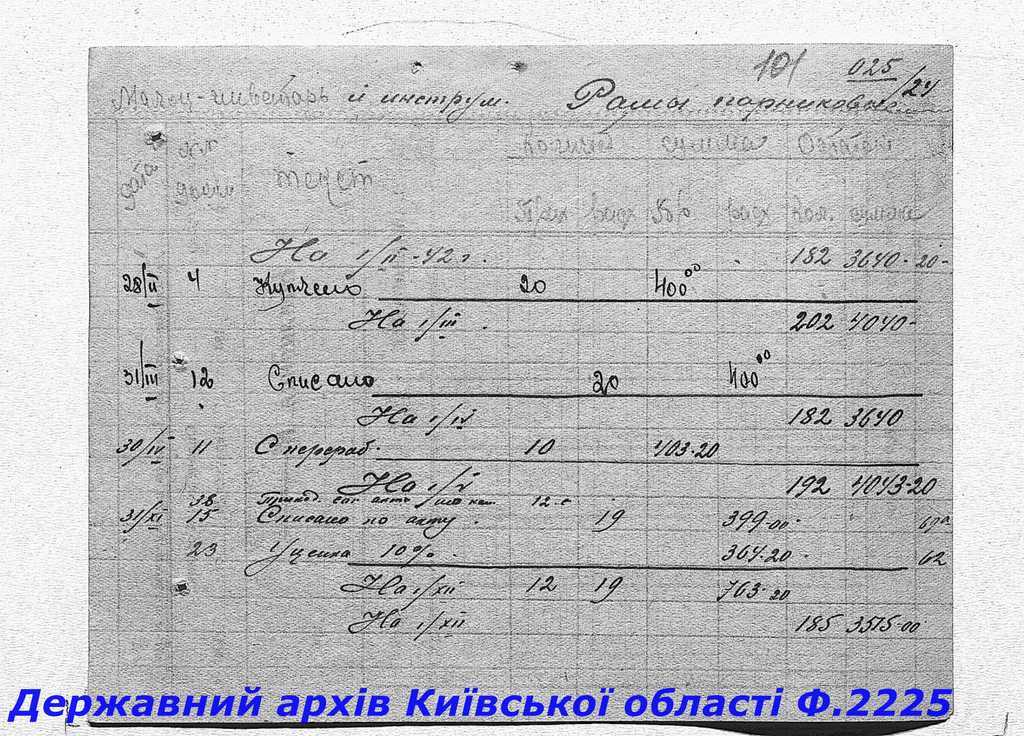 101 025/24
Малоц-инвентарь и инструм. Рамы парниковые
Дата Текст Колич сумма Остаток
Прих Расх расх Кол. сумма
На 1/II-42 г. 182 3640-20-
28/II 4 Куплено 20 400⁰⁰
На 1/III. 202 4040-
31/III 12 Списано 20 400⁰⁰
На 1/IV 182 3640
30/IV 11 С перераб. 10 403-20
На 1/V 192 4043-20
38 12
31/XI 15 Списано по акту. 19 399-00-
23 Уценка 10%. 364-20 62
На 1/XII 12 19 763-20
На 1/XII 185 3515-00
Державний архів Київської області Ф.2225